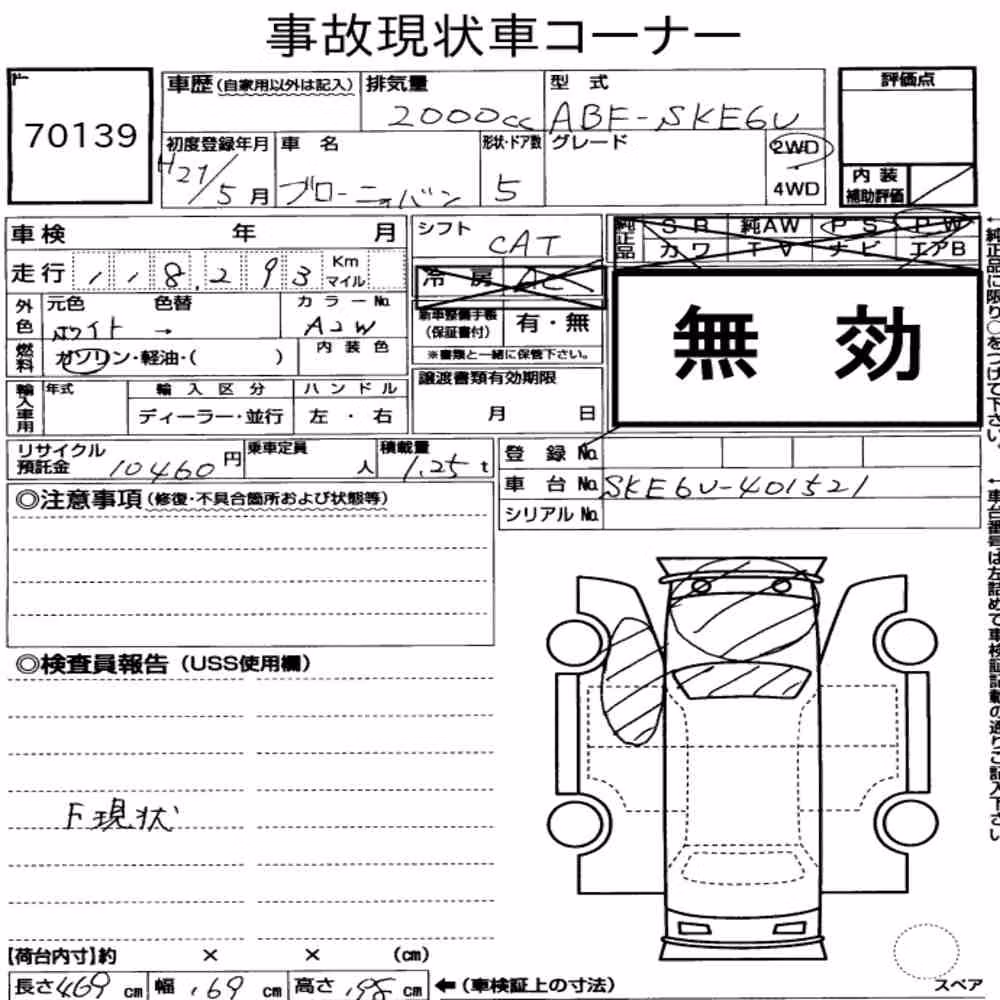 事故現状車コーナー
70139
車歴(自家用以外は記入)
排気量
2000cc
型式
ABF-SKE6V
評価点
初度登録年月
H21/5月
車名
ブローニィバン
形状・ドア数
5
グレード
2WD
4WD
内装
補助評価
車検 年 月
シフト
CAT
純正品
SR 純AW PS PW
カワ TV ナビ エアB
走行 118,293 Km マイル
冷房 AC
無効
外色
元色 色替
ホワイト →
カラーNo.
A2W
新車整備手帳
(保証書付)
有・無
※書類と一緒に保管下さい。
燃料
ガソリン・軽油・( )
内装色
輸入車用
年式
輸入区分
ハンドル
ディーラー・並行
左・右
譲渡書類有効期限
月 日
リサイクル
預託金
10460円
乗車定員
人
積載量
1.25t
登録No.
車台No. SKE6V-401521
シリアルNo.
◎注意事項(修復・不具合箇所および状態等)
◎検査員報告(USS使用欄)
F現状
【荷台内寸】約 × × (cm)
長さ469cm 幅169cm 高さ198cm ←(車検証上の寸法)
スペア
←純正品に限り○をつけて下さい。
←車台番号は左詰めで車検証記載の通りご記入下さい